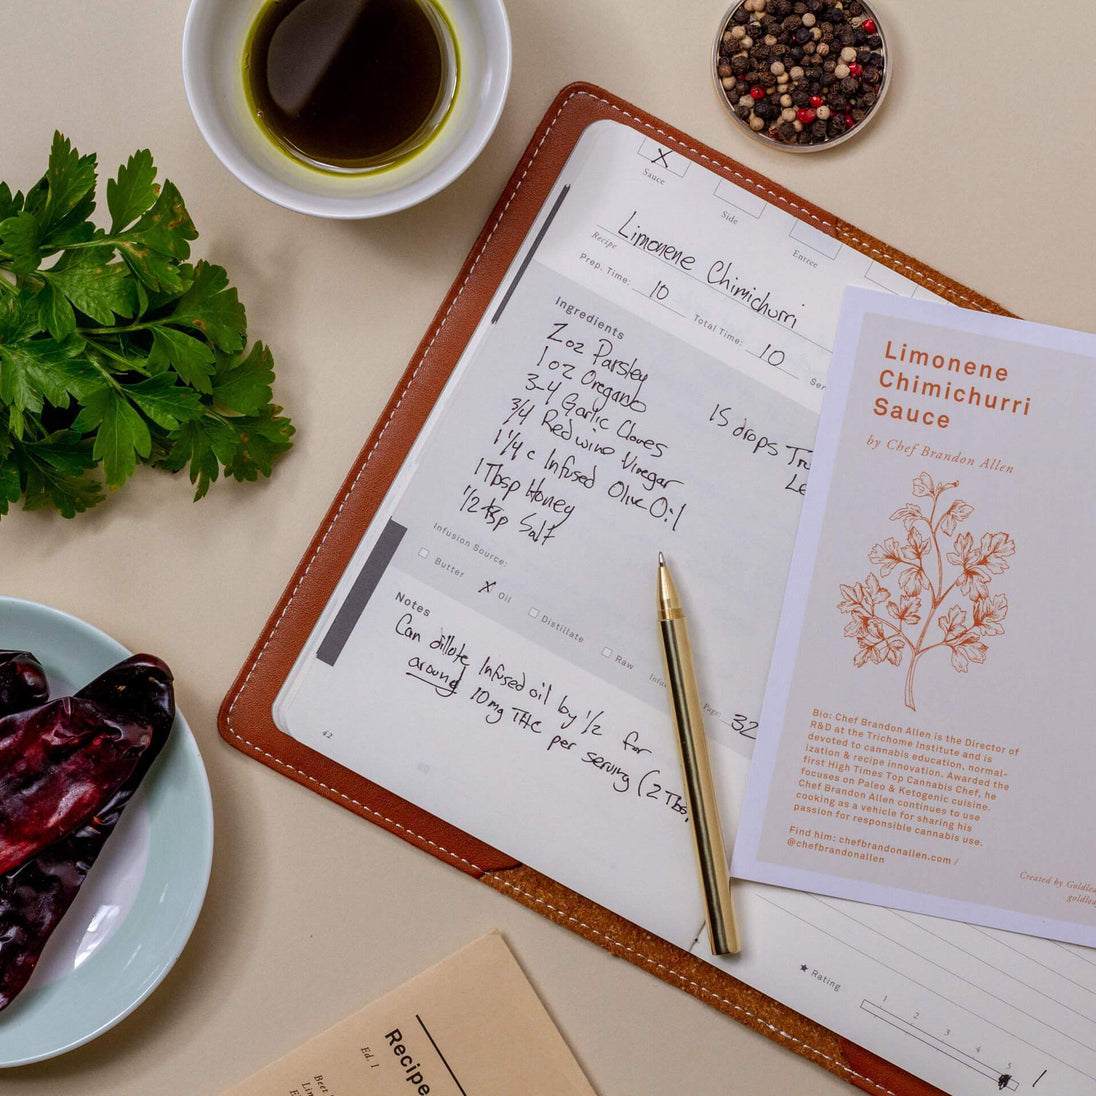 X
Sauce
Side
Entree
Recipe Limonene Chimichurri
Prep. Time: 10 Total Time: 10 Ser
Ingredients
2 oz Parsley
1 oz Oregano
3-4 Garlic Cloves
3/4 Red wine Vinegar
1 1/4 c Infused Olive Oil
1 Tbsp Honey
1/2 tsp Salt
15 drops
Infusion Source:
Butter X Oil Distillate Raw
Page: 32
Notes
Can dillote Infused oil by 1/2 for
around 10mg THC per serving (2 Tbs.
42
Limonene
Chimichurri
Sauce
by Chef Brandon Allen
Bio: Chef Brandon Allen is the Director of
R&D at the Trichome Institute and is
devoted to cannabis education, normal-
ization & recipe innovation. Awarded the
first High Times Top Cannabis Chef, he
focuses on Paleo & Ketogenic cuisine.
Chef Brandon Allen continues to use
cooking as a vehicle for sharing his
passion for responsible cannabis use.
Find him: chefbrandonallen.com /
@chefbrandonallen
Created by Goldlea
goldlea
★ Rating
1 2 3 4 5
Recipe
Ed. 1